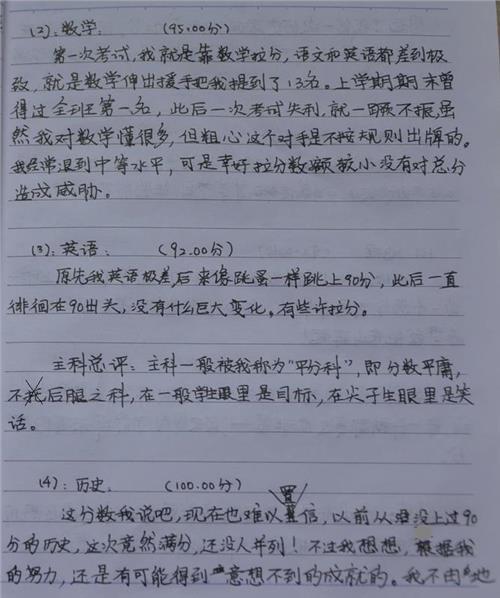 (2): 数学: (95.00分)
第一次考试，我就是靠数学拉分，语文和英语都差到极
致，就是数学伸出援手把我提到了13名。上学期期末曾
得过全班第一名，此后一次考试失利，就一蹶不振，虽
然我对数学懂很多，但粗心这个对手是不按规则出牌的。
我经常退到中等水平，可是幸好拉分数额较小没有对总分
造成威胁。
(3): 英语: (92.00分)
原先我英语极差后来像跳蚤一样跳上90分，此后一直
徘徊在90出头，没有什么巨大变化。有些许拉分。
主科总评: 主科一般被我称为“平分科”，即分数平庸，
不拖后腿之科，在一般学生眼里是目标，在尖子生眼里是笑
话。
(4): 历史. (100.00分)
这分数我说吧，现在也难以置信，以前从没上过90
分的历史，这次竟然满分，还没人并列！不过我想想，根据我
的努力，还是有可能得到意想不到的成就的。我不由地